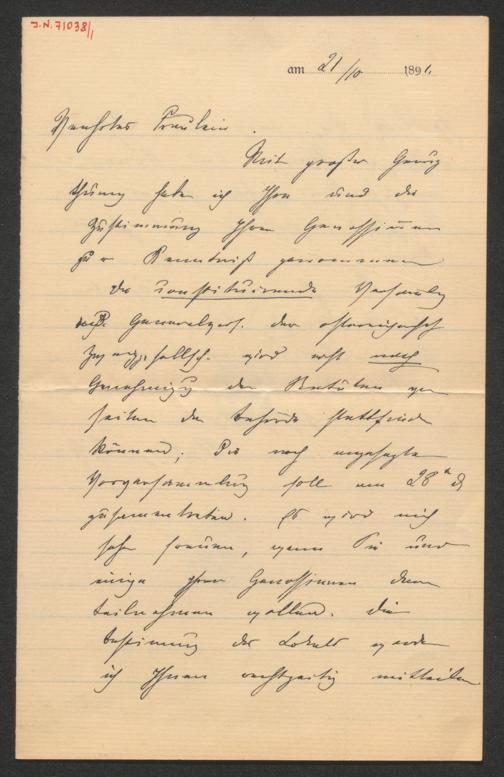 J.N. 71038/1
am 21/10 1891.
Verehrtes Fräulein.
Mit großer Genug
thuung habe ich Ihre und die
Zustimmung Ihrer Genossinnen
zur Kenntniß genommen
Die constituirende Versamlg
resp. Generalvers. der österreichisch
wird erst nach
Genehmigg der Statuten von
seiten der Behörde stattfinden
können; Die noch angesagte
Vorversammlung soll am 28n d
zusammentreten. Es wird mich
sehr freuen, wenn Sie und
einige Ihrer Genossinnen daran
teilnehmen wollen. Die
Bestimmung des Lokals werde
ich Ihnen rechtzeitig mitteilen